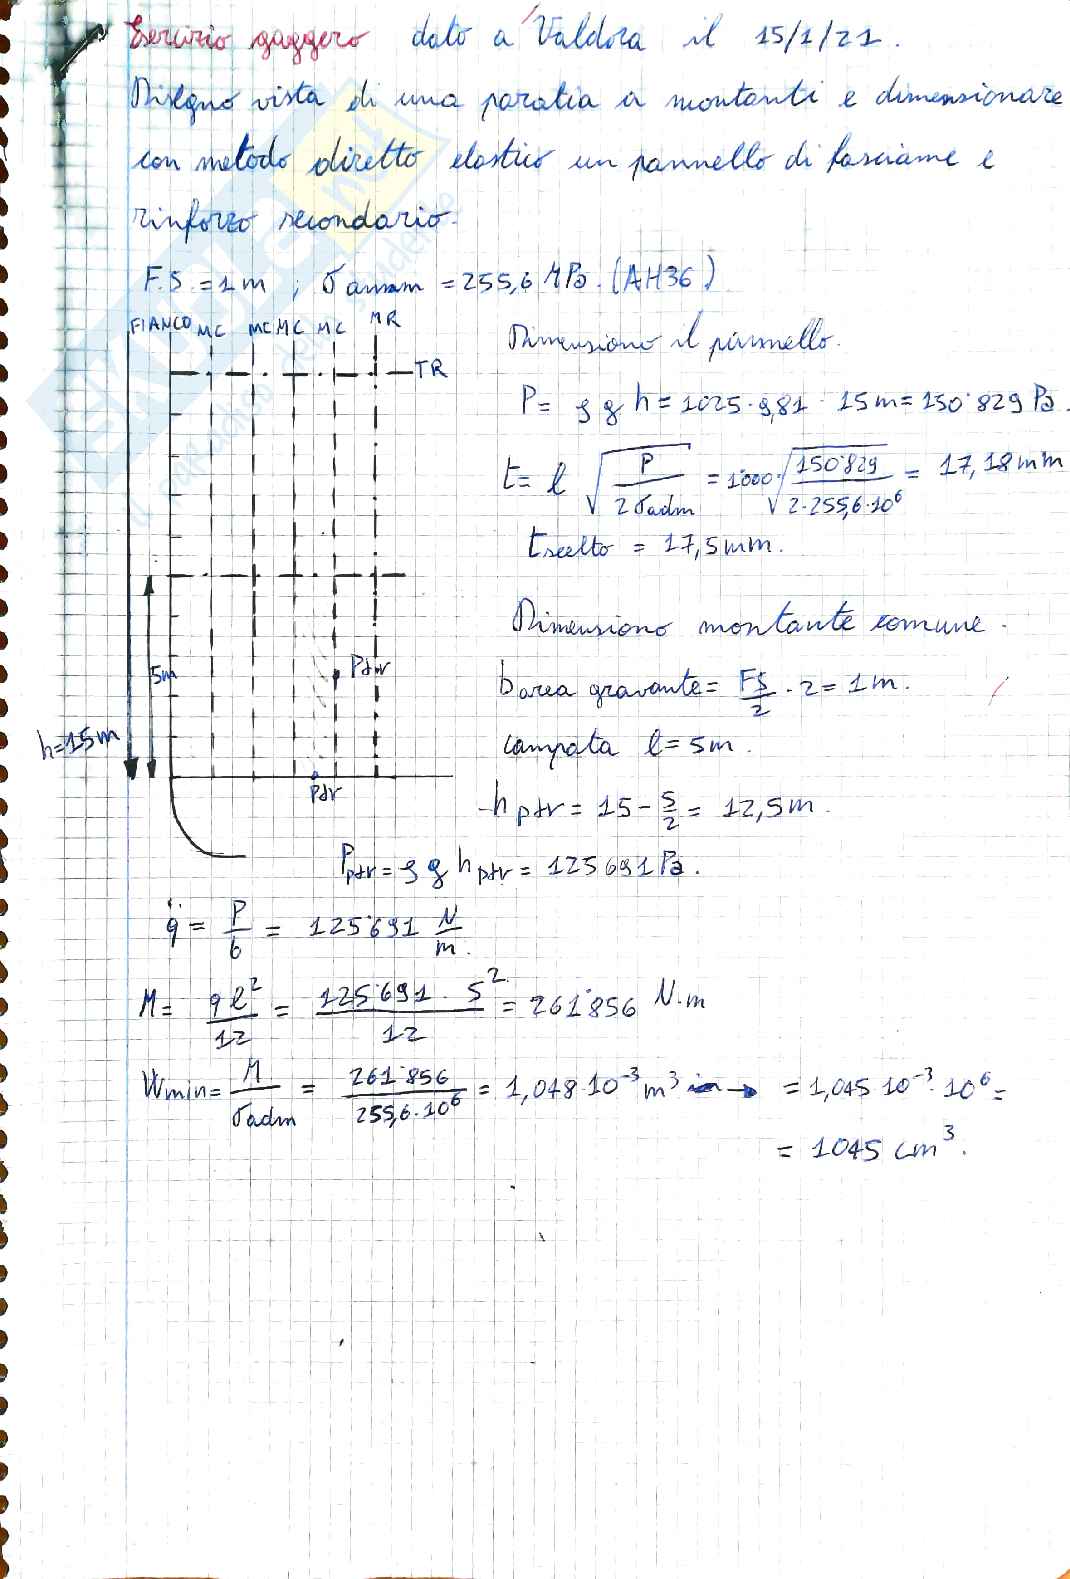 Esercizio gaggero dato a Valdora il 15/1/21.
Disegno vista di una paratia a montanti e dimensionare
con metodo diretto elastico un pannello di fasciame e
rinforzo secondario.
F.S. = 1 m ; σ amm = 255,6 MPa. (AH36)
FIANCO MC MC MC MC MR
TR
Dimensiono il pannello.
P = ρ g h = 1025 · 9,81 · 15 m = 150'829 Pa.
t = l √(P / 2 σadm) = 1000 · √(150'829 / 2·255,6·10⁶) = 17,18 mm
t scelto = 17,5 mm.
Dimensiono montante comune.
b area gravante = FS/2 · 2 = 1 m.
Pdr
5m
h=15m
campata l = 5 m.
Pdr
h pdr = 15 - 5/2 = 12,5 m.
P pdr = ρ g h pdr = 125 691 Pa.
q = P/b = 125'691 N/m.
M = q l²/12 = 125'691 · 5²/12 = 261'856 N·m
Wmin = M/σadm = 261'856/255,6·10⁶ = 1,048·10⁻³ m³ → = 1,045 10⁻³ · 10⁶ =
= 1045 cm³.